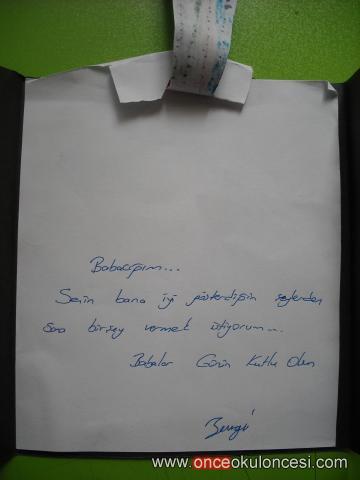 Babacığım...
Senin bana iyi gösterdiğin şeylerden
sana birşey vermek istiyorum...
Babalar Günün Kutlu Olsun
www.onceokuloncesi.com